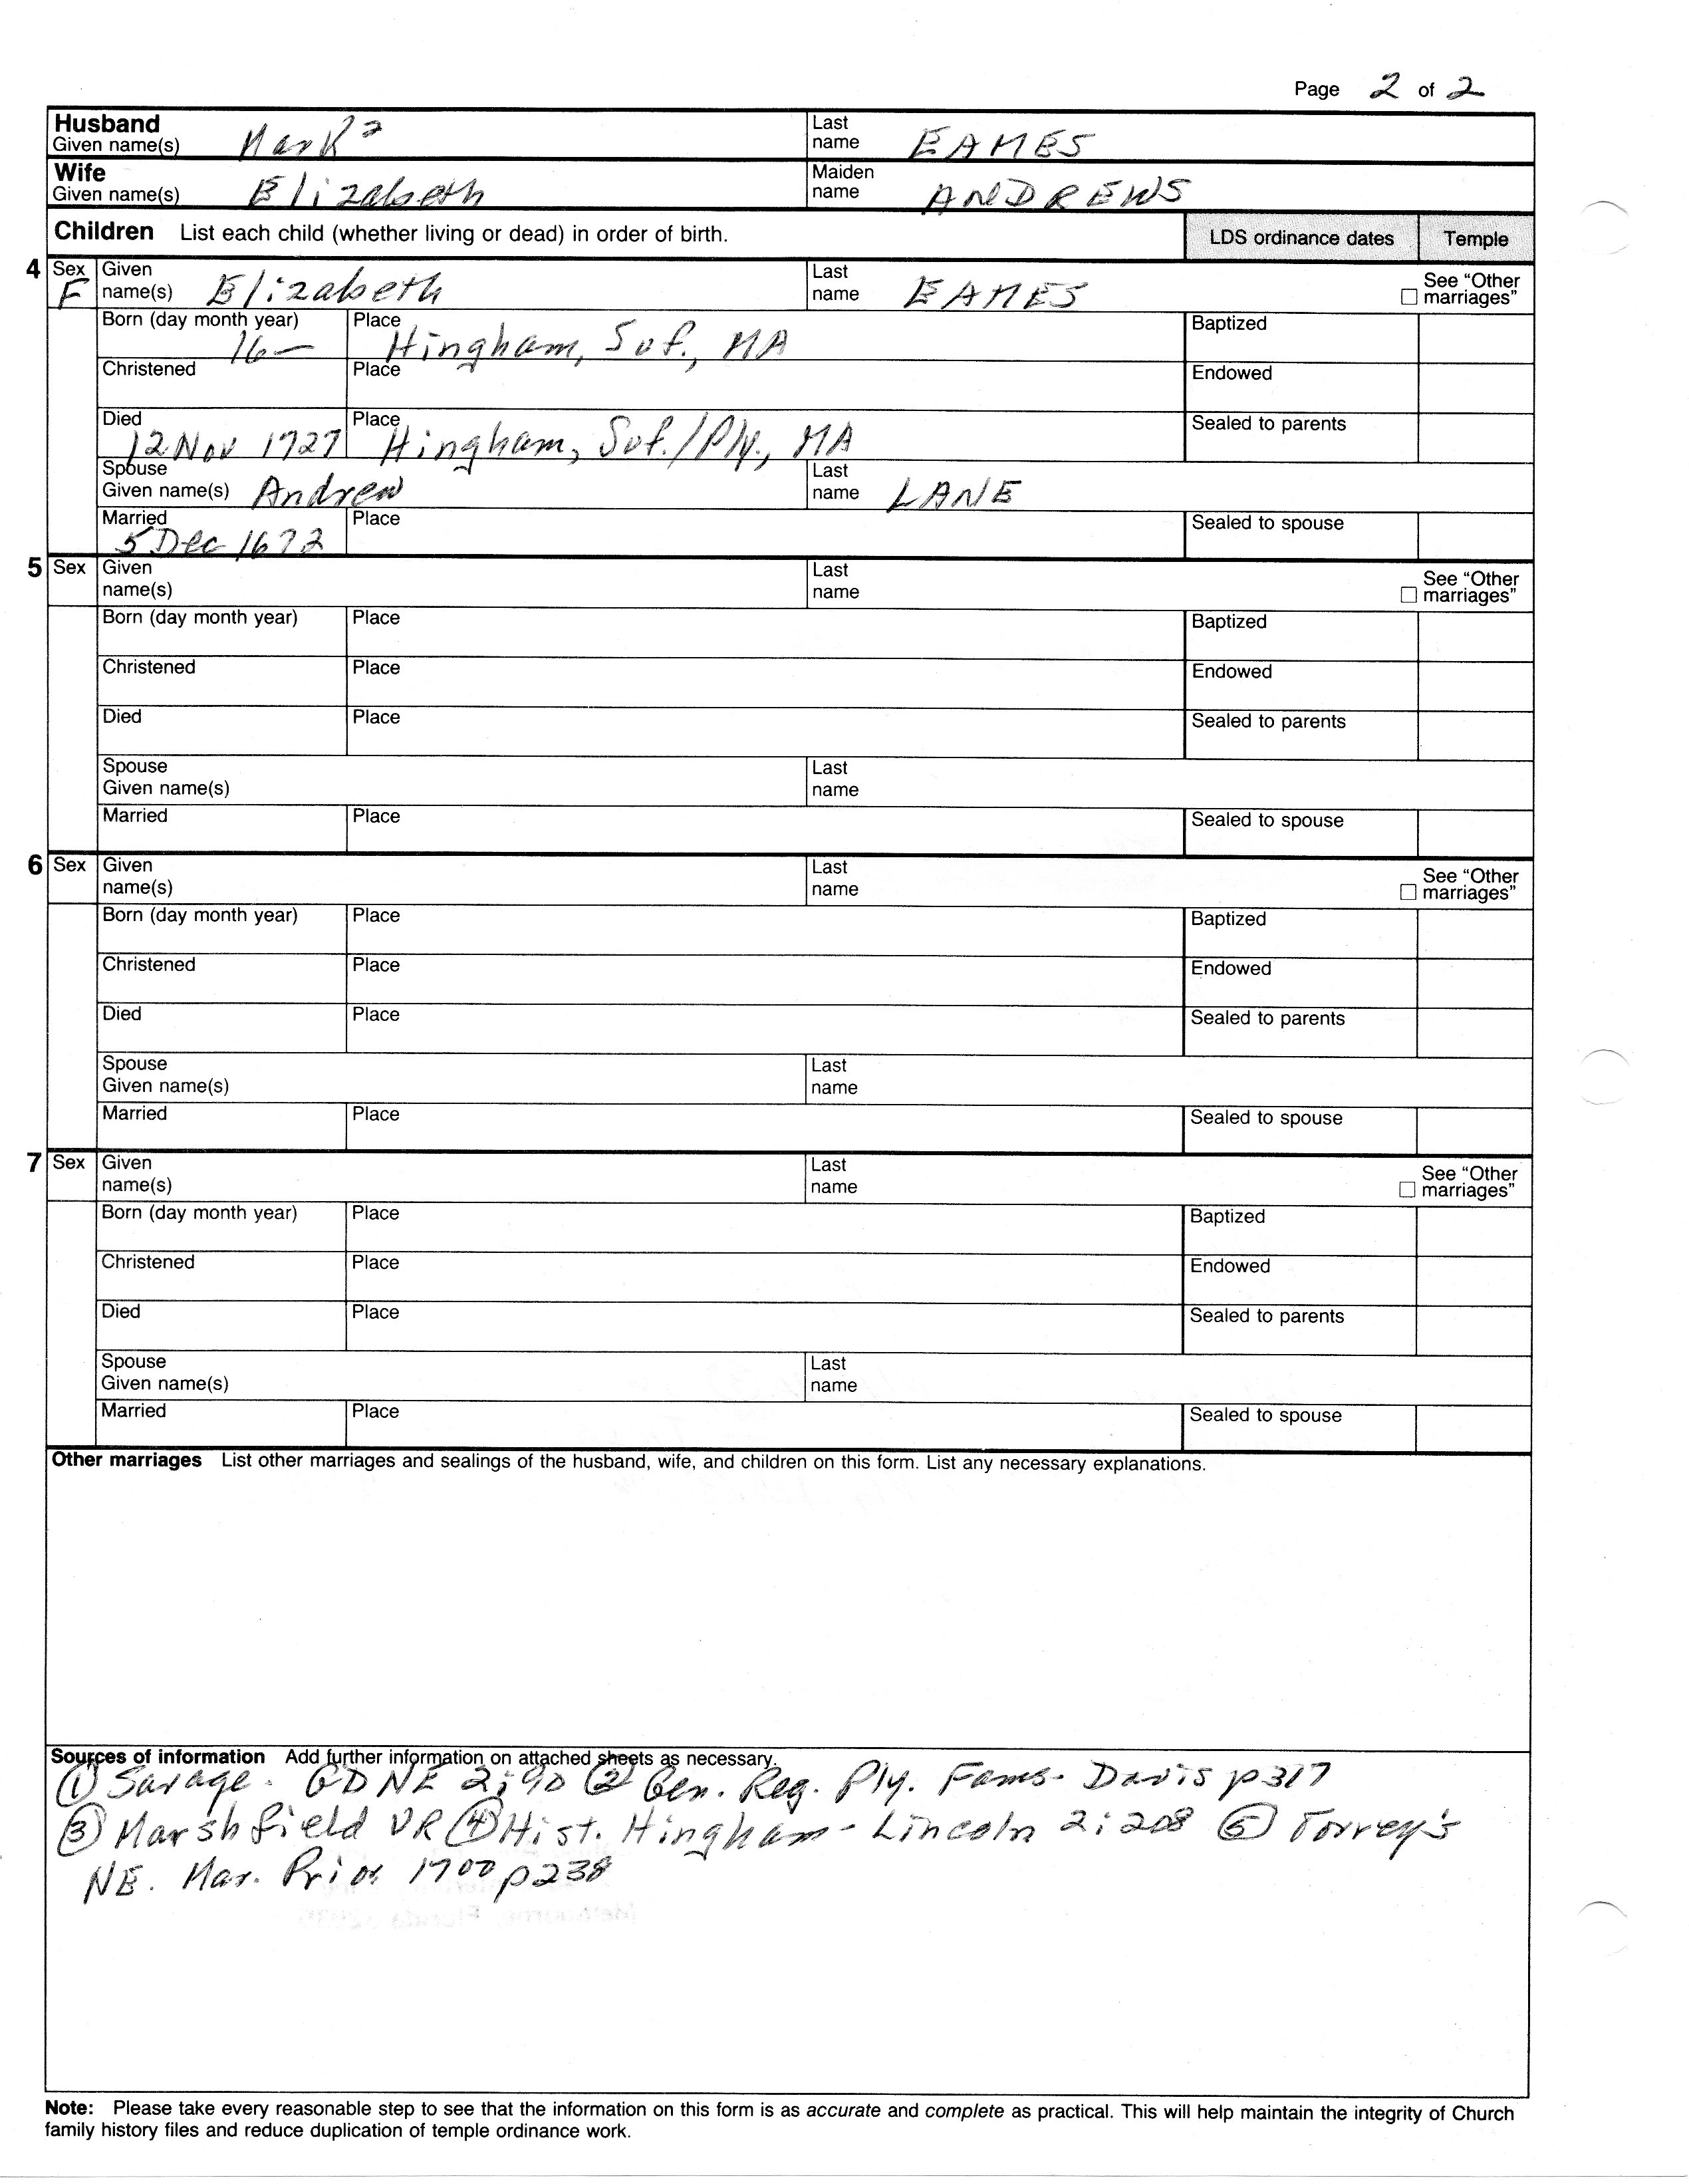 Page 2 of 2
Husband Given name(s) Mark² Last name EAMES
Wife Given name(s) Elizabeth Maiden name ANDREWS
Children List each child (whether living or dead) in order of birth. LDS ordinance dates Temple
4 Sex F Given name(s) Elizabeth Last name EAMES See "Other marriages"
Born (day month year) 16— Place Hingham, Suf., MA Baptized
Christened Place Endowed
Died 12 Nov 1727 Place Hingham, Suf./Ply., MA Sealed to parents
Spouse Given name(s) Andrew Last name LANE
Married 5 Dec 1672 Place Sealed to spouse
5 Sex Given name(s) Last name See "Other marriages"
Born (day month year) Place Baptized
Christened Place Endowed
Died Place Sealed to parents
Spouse Given name(s) Last name
Married Place Sealed to spouse
6 Sex Given name(s) Last name See "Other marriages"
Born (day month year) Place Baptized
Christened Place Endowed
Died Place Sealed to parents
Spouse Given name(s) Last name
Married Place Sealed to spouse
7 Sex Given name(s) Last name See "Other marriages"
Born (day month year) Place Baptized
Christened Place Endowed
Died Place Sealed to parents
Spouse Given name(s) Last name
Married Place Sealed to spouse
Other marriages List other marriages and sealings of the husband, wife, and children on this form. List any necessary explanations.
Sources of information Add further information on attached sheets as necessary.
① Savage. GDNE 2:90 ② Gen. Reg. Ply. Fams. Davis p317
③ Marshfield VR ④ Hist. Hingham - Lincoln 2:208 ⑤ Torrey's
NE. Mar. Prior 1700 p238
Note: Please take every reasonable step to see that the information on this form is as accurate and complete as practical. This will help maintain the integrity of Church
family history files and reduce duplication of temple ordinance work.